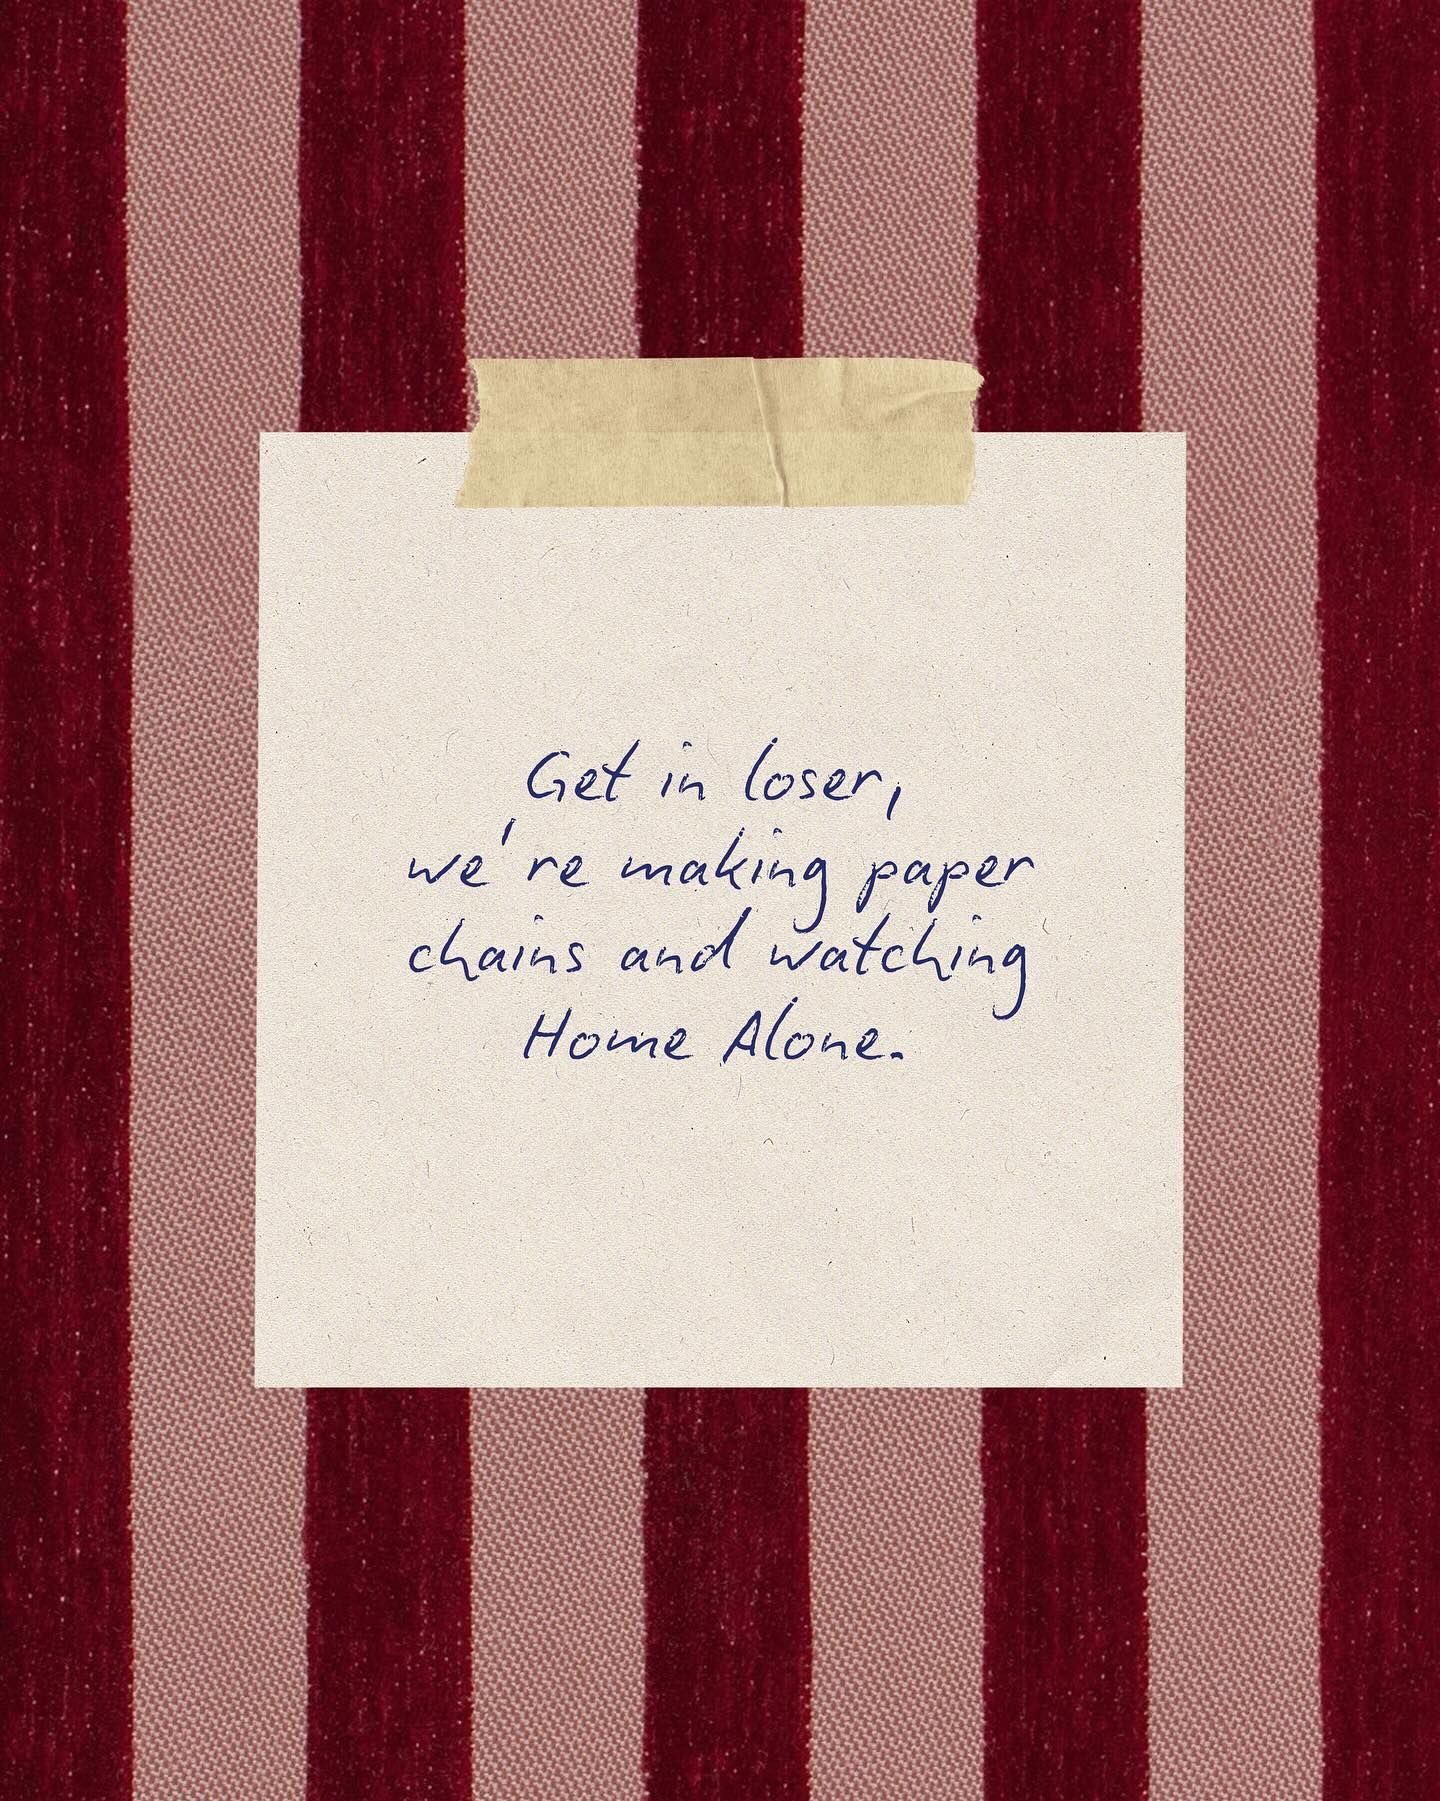 Get in loser,
we're making paper
chains and watching
Home Alone.